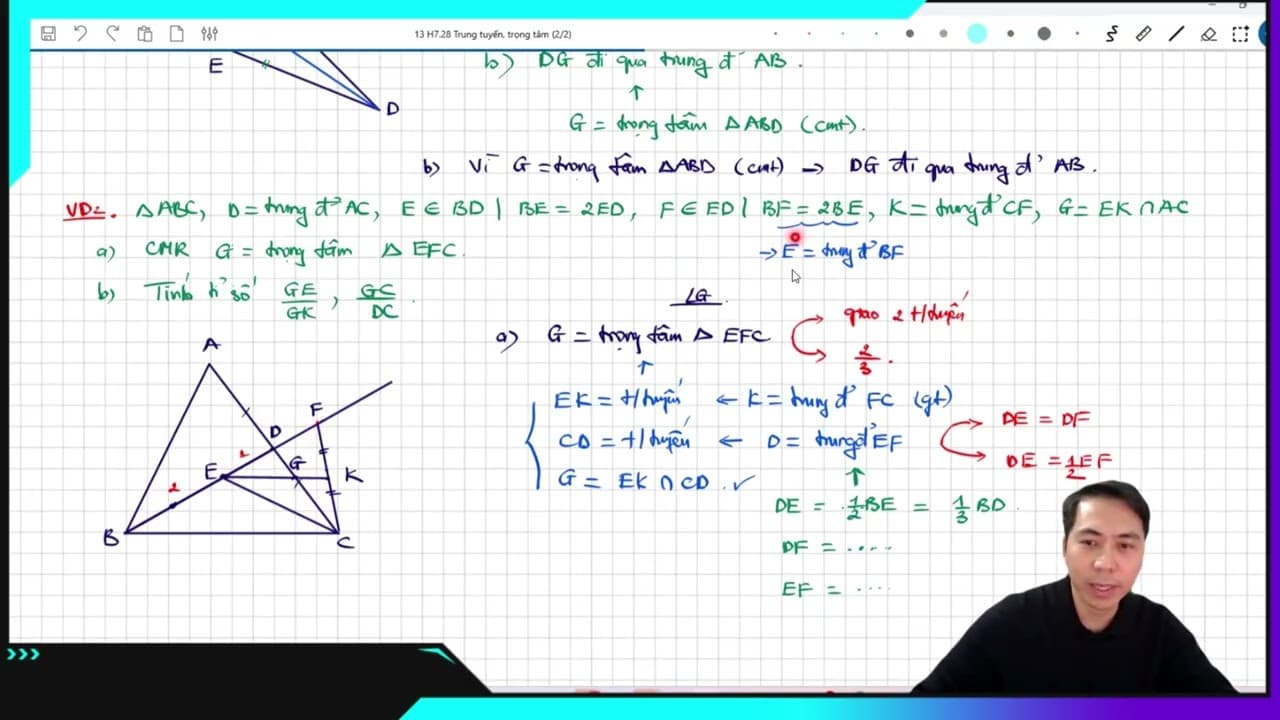 13 H7.28 Trung tuyến. trọng tâm (2/2)
E
D
b) DG đi qua trung đ' AB.
↑
G = trọng tâm △ABD (cmt).
b) Vì G = trọng tâm △ABD (cmt) → DG đi qua trung đ' AB.
VD2. △ABC, D = trung đ' AC, E ∈ BD | BE = 2ED, F ∈ ED | BF = 2BE, K = trung đ' CF, G = EK ∩ AC
a) CMR G = trọng tâm △ EFC.
→ E = trung đ' BF
b) Tính tỉ số GE/GK, GC/DC.
LG
a) G = trọng tâm △ EFC
giao 2 t/tuyến
2/3.
↑
EK = t/tuyến ← K = trung đ' FC (gt)
CD = t/tuyến ← D = trung đ' EF
G = EK ∩ CD. ✓
DE = DF
DE = 1/2 EF
↑
DE = 1/2 BE = 1/3 BD.
DF = ....
EF = ....
A
F
D
2
1
E
G
K
B
C